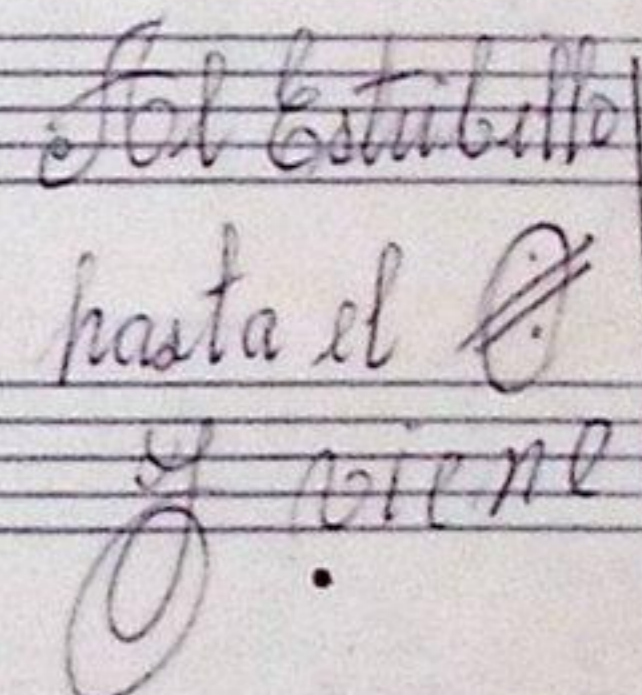 Al Estribillo
hasta el
Y viene